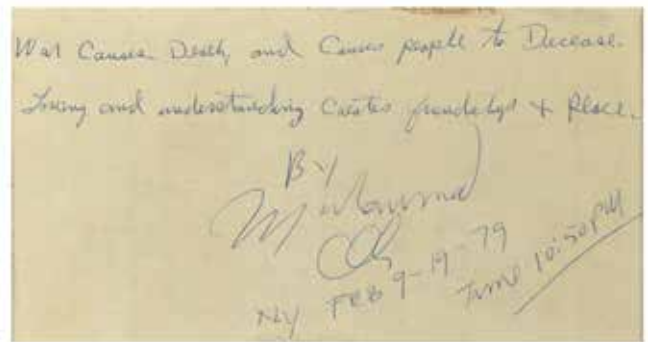 War Causes Death, and Causes people to Decease.
Loving and understanding Creates friendships + Peace.
BY
Muhammad
Ali
NY FEB 9-19-79
Time 10:50 PM